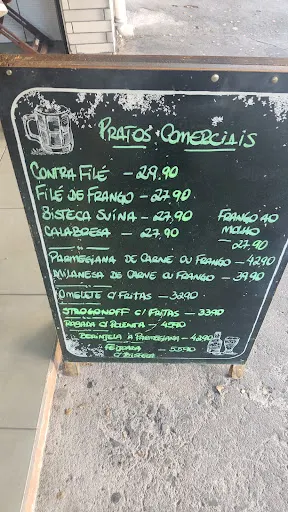 PRATOS COMERCIAIS
CONTRA FILÉ - 29,90
FILÉ DE FRANGO - 27,90
BISTECA SUÍNA - 27,90
CALABRESA - 27,90
FRANGO AO
MOLHO
- 27,90
PARMEGIANA DE CARNE OU FRANGO - 42,90
MILANESA DE CARNE OU FRANGO - 39,90
OMELETE C/ FRITAS - 32,90
STROGONOFF C/ FRITAS - 33,90
RABADA C/ POLENTA - 45,90
BERINJELA À PARMEGIANA - 43,90
FEIJOADA - 55,90